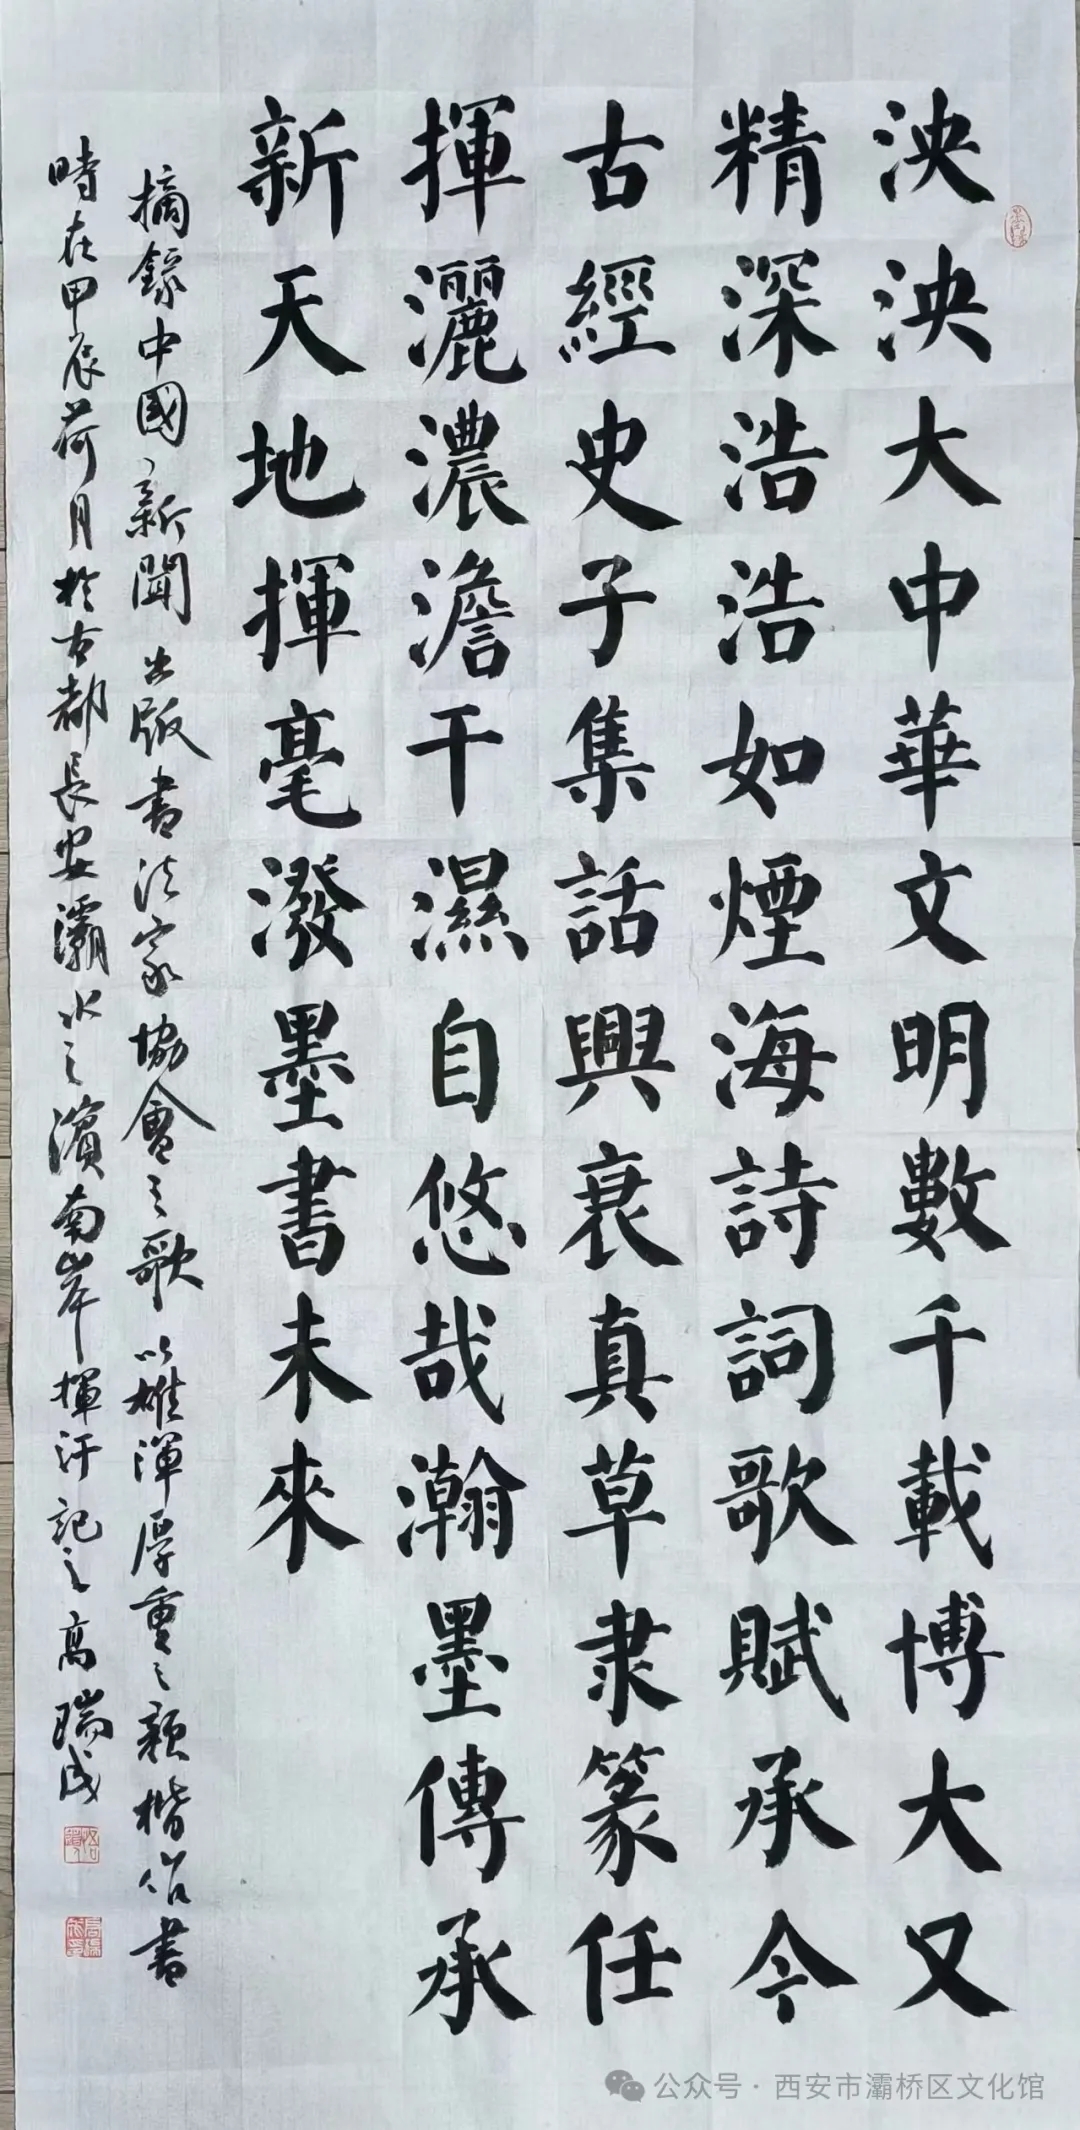 泱泱大中華文明數千載博大又
精深浩浩如煙海詩詞歌賦承今
古經史子集話興衰真草隶篆任
揮灑濃澹干濕自悠哉瀚墨傳承
新天地揮毫潑墨書未來
摘錄中國新聞出版書法家協會之歌以雄渾厚重之顏楷作書
時在甲辰荷月於古都長安灞水之濱南岸揮汗記之高瑞成
公众号·西安市灞桥区文化馆